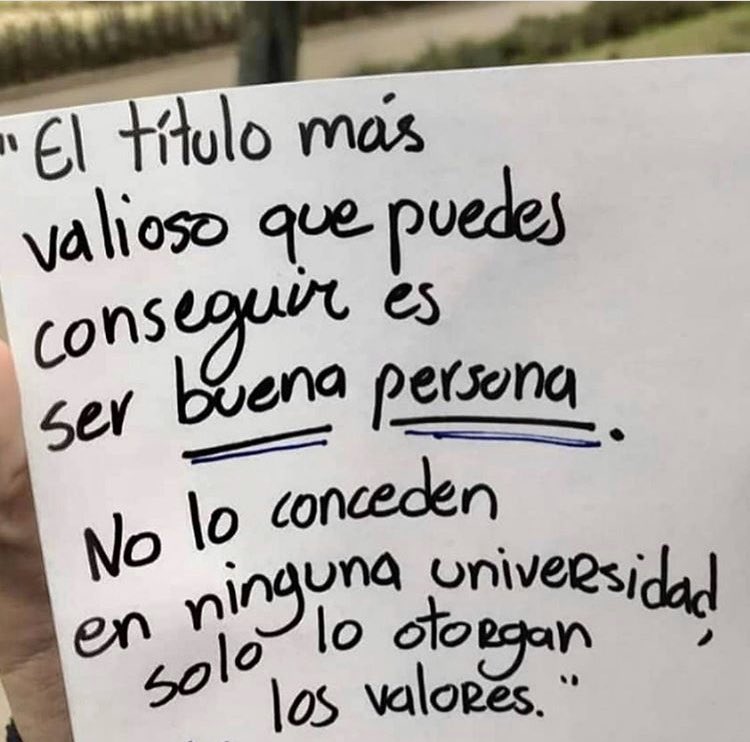 "El título más
valioso que puedes
conseguir es
ser buena persona.
No lo conceden
en ninguna universidad,
solo lo otorgan
los valores."